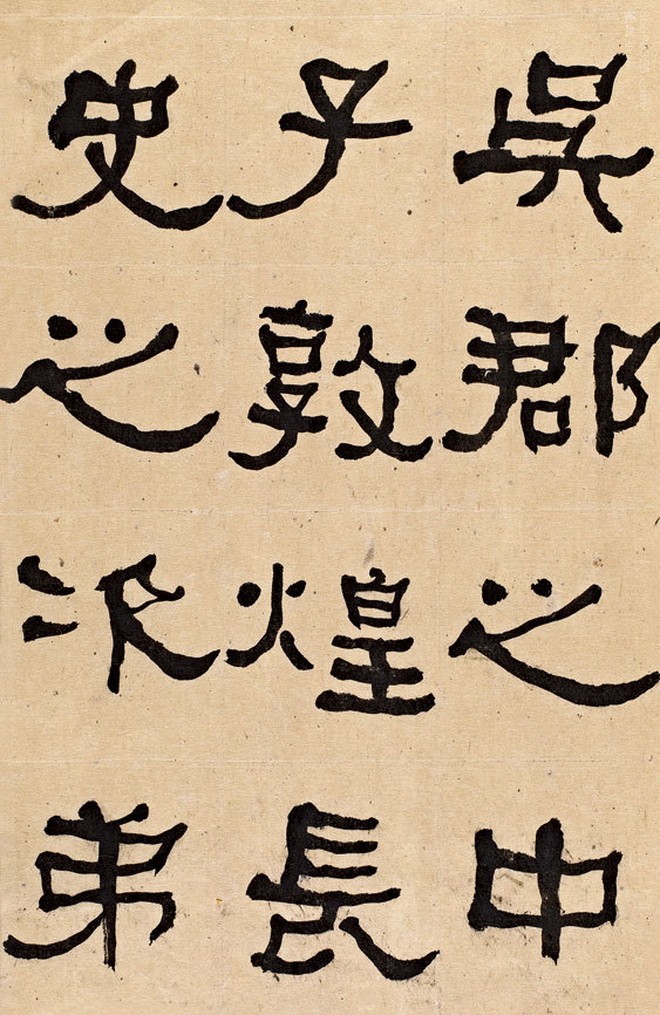 吳郡之中
子敦煌長
史之次弟